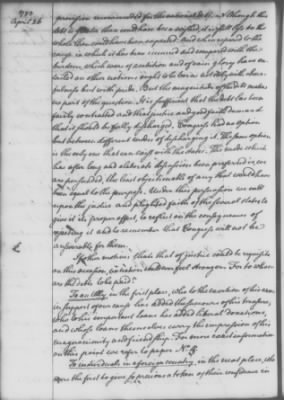 1783
April 26
provision recommended for the national debt. Although the
debt is greater than could have been wished, it is still less on the
whole than could have been expected. And when referred to the
cause in which it has been incurred and compared with the
burdens which wars of ambition and of vain glory have en-
tailed on other nations ought to be borne not only with chear-
fulness but with pride. But the magnitude of the debt makes
no part of the question. It is sufficient that the debt has been
fairly contracted and that justice and good faith demand
that it should be fully discharged. Congress had no option
but between different modes of discharging it. The same option
is the only one that can exist with the states. The mode which
has after long and elaborate discussion been preferred is, we
are persuaded, the least objectionable of any that would have
been equal to the purpose. Under this persuasion we call
upon the justice and plighted faith of the several states to
give it its proper effect, to reflect on the consequences of
rejecting it and to remember that Congress will not be
answerable for them.
If other motives than that of justice could be requisite
on this occasion, no nation could ever feel stronger. For to whom
are the debts to be paid?
To an Ally, in the first place, who to the exertion of his arms
in support of our cause has added the succours of his treasure,
who to his important loans has added liberal donations,
and whose loans themselves carry the impression of his
magnanimity and friendship. For more exact information
on this point we refer to paper No.
To individuals in a foreign country, in the next place, who
were the first to give so precious a token of their confidence in